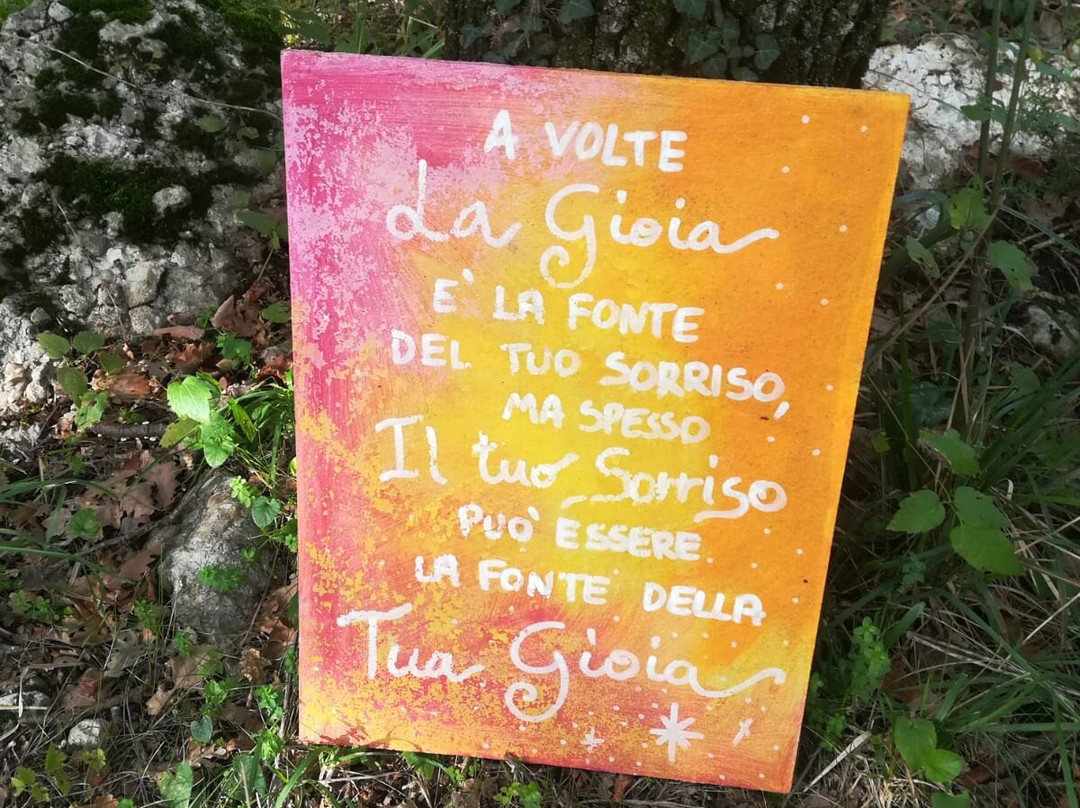 A VOLTE
La Gioia
E' LA FONTE
DEL TUO SORRISO,
MA SPESSO
Il tuo Sorriso
PUO' ESSERE
LA FONTE DELLA
Tua Gioia